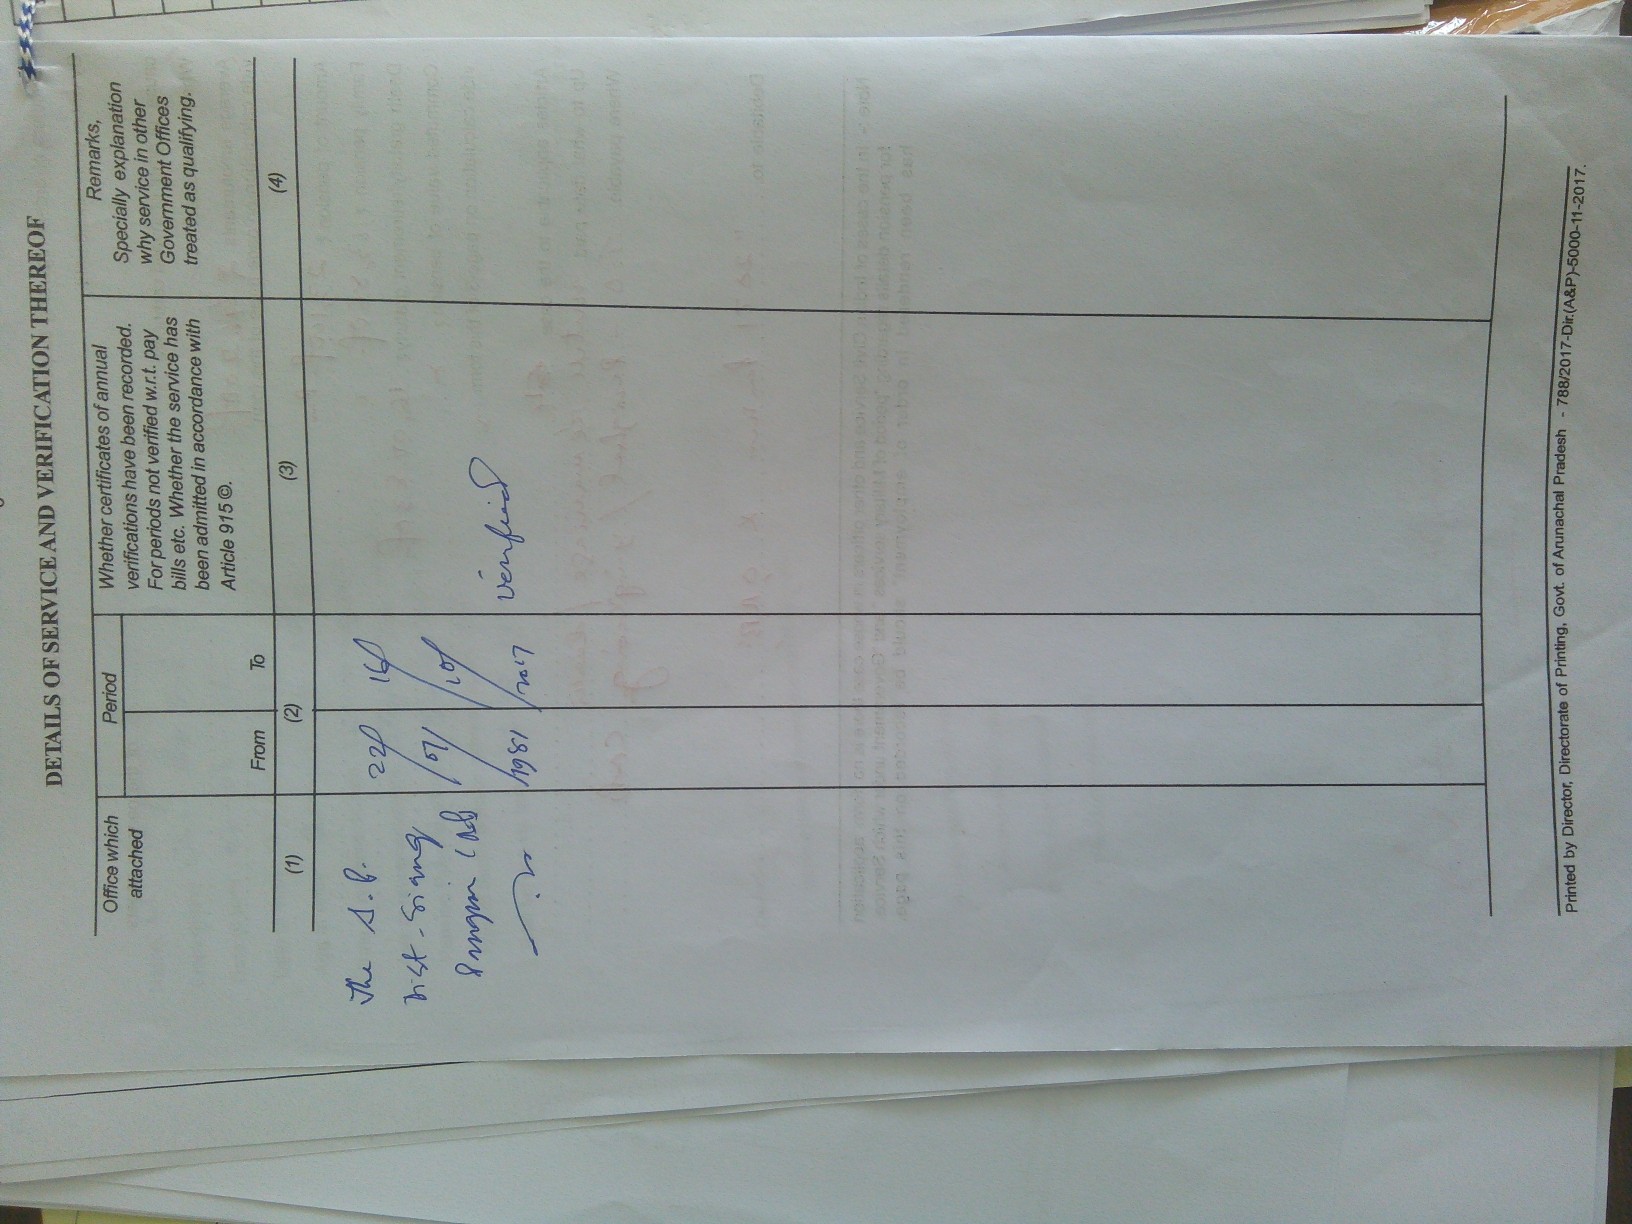 DETAILS OF SERVICE AND VERIFICATION THEREOF
Office which
attached
Period
From
To
Whether certificates of annual
verifications have been recorded.
For periods not verified w.r.t. pay
bills etc. Whether the service has
been admitted in accordance with
Article 915 ©.
Remarks,
Specially explanation
why service in other
Government Offices
treated as qualifying.
(1)
(2)
(3)
(4)
The S.P.
Dist - Siang
Pangin (AP)
22/
/07/
/1981
16/
/10/
/2017
Verified
Printed by Director, Directorate of Printing, Govt. of Arunachal Pradesh - 788/2017-Dir.(A&P)-5000-11-2017.